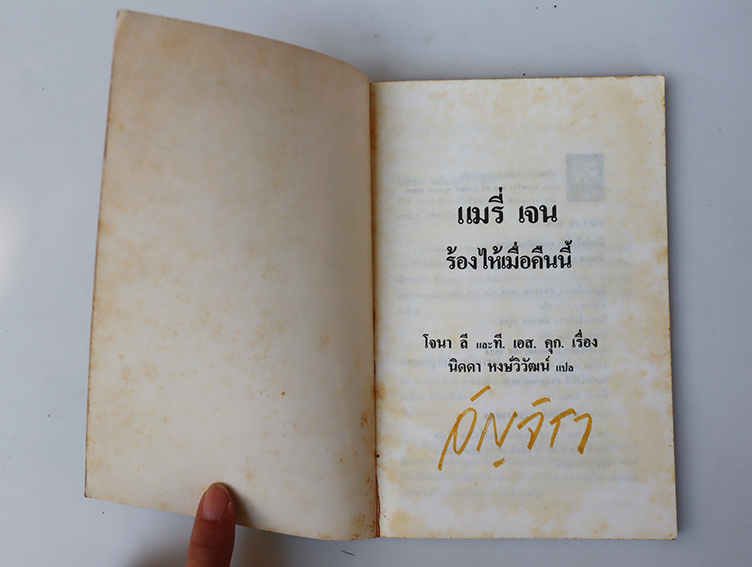 แมรี่ เจน
ร้องไห้เมื่อคืนนี้
โจนา ลี และที. เอส. คุก. เรื่อง
นิดดา หงษ์วิวัฒน์ แปล
อัญจิรา